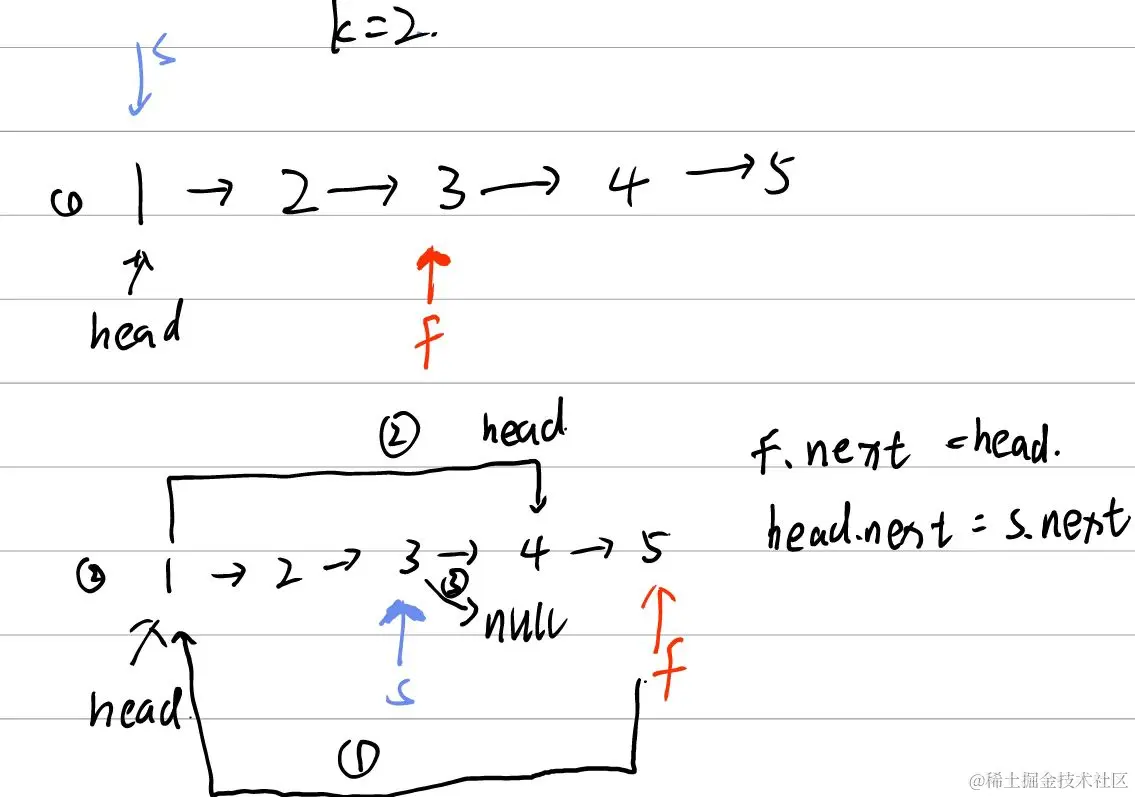 k=2.
s
① 1 → 2 → 3 → 4 → 5
head
f
② head
f.next = head.
② 1 → 2 → 3 → 4 → 5
head.next = s.next
③
null
head
s
f
①
@稀土掘金技术社区